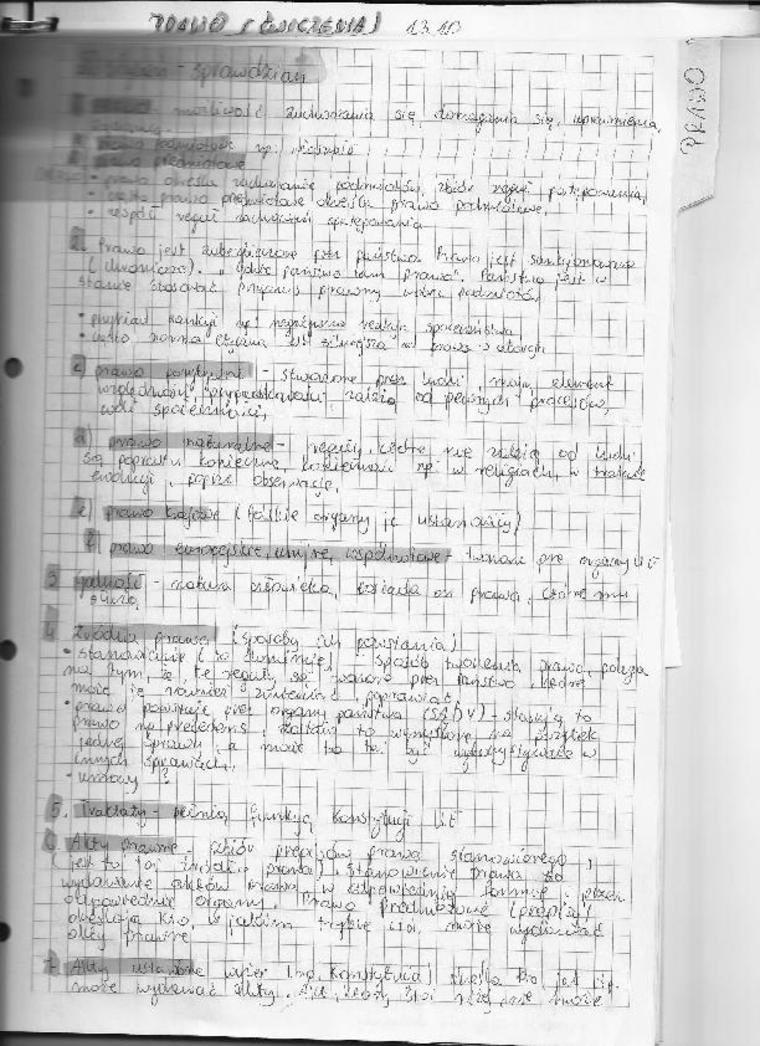 PRAWO (ĆWICZENIA) 13.10
PRAWO
- sprawdzian
możliwość zachowania się, domagania się, uprawnienia,
prawo podmiotowe np.
prawo przedmiotowe
• prawo określa zachowanie podmiotów, zbiór reguł postępowania,
• często prawo przedmiotowe określa prawo podmiotowe,
• zespół reguł zachowań postępowania
2. Prawo jest zabezpieczone przez państwo. Prawo jest sankcjonowane
(chronione). "gdzie państwo tam prawo". Państwo jest w
stanie stosować przymus prawny wobec podmiotów
• przykład sankcji np: negatywna reakcja społeczeństwa
• często norma etyczna jest silniejsza niż prawo
c) prawo pozytywne - stworzone przez ludzi, mają element
względności, przypadkowości zależą od pewnych procesów,
woli społeczności,
d) prawo naturalne - reguły, które nie zależą od ludzi
są poprostu konieczne, np w religiach, w trakcie
ewolucji, poprzez obserwację,
e) prawo krajowe (polskie organy je ustanawiły)
f) prawo europejskie, unijne, wspólnotowe - tworzone prze organy UE
3 godność - natura człowieka, posiada on prawa, które mu
służą,
4 Źródła prawa (sposoby ich powstania)
• stanowienie (to dominuje) - sposób tworzenia prawa, polega
na tym, że te reguły są tworzone przez państwo, które
może je również zmieniać, poprawiać
• prawo powstaje przez organy państwa (SĄDY) - stosują to
prawo na precedens, zostało to wymyślone na użytek
jednej sprawy, a może to też być wykorzystywane w
innych sprawach,
• umowy ?
5. Traktaty - pełnią funkcją konstytucji UE
6. Akty prawne - zbiór przepisów prawa stanowionego,
(jest to też źródło prawa). Stanowienie prawa to
wydawanie aktów prawa w odpowiedniej formie i przez
odpowiednie organy. Prawo przedmiotowe (przepisy)
określają kto, w jakim trybie itd. może wydawać
akty prawne
7. Akty ustawowe (np. Konstytucja) określa kto jest
może wydawać akty,